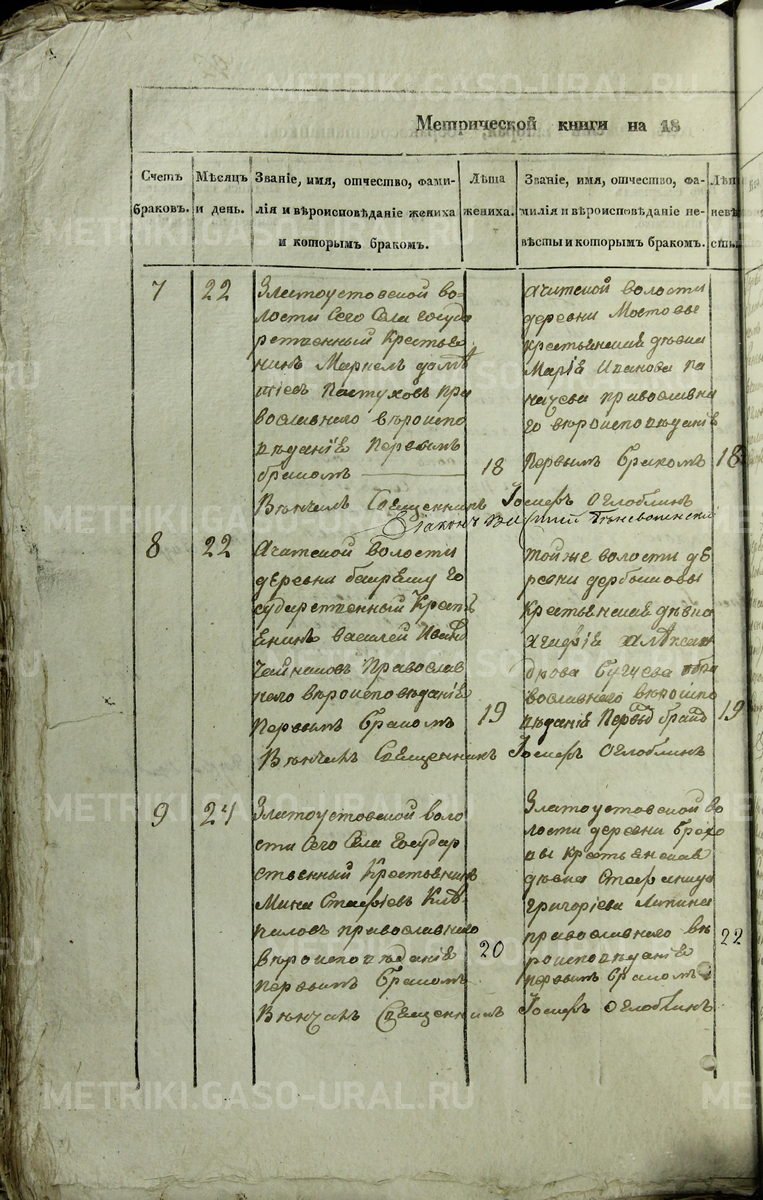 Метрической книги на 18
Счетъ браковъ.
Мѣсяцъ и день.
Званіе, имя, отчество, фами-
лія и вѣроисповѣданіе жениха
и которымъ бракомъ.
Лѣта жениха.
Званіе, имя, отчество, фа-
милія и вѣроисповѣданіе не-
вѣсты и которымъ бракомъ.
Лѣт
невѣ
сты
7
22
Златоустовской во-
лости сего села госуда
рственный крестья
нинъ Маркелъ
Пастуховъ пра
вославнаго вѣроиспо
вѣданіе первымъ
бракомъ
18
Ачитской волости
деревни Мостовы
крестьянская дѣвка
Марiя Иванова Па
православна
го вѣроисповѣданіе
первымъ бракомъ
18
Вѣнчалъ священникъ Іосифъ Оглоблинъ
8
22
Ачитской волости
деревни го
сударственный крест
янинъ Василей Ивано
православ
наго вѣроисповѣданіе
первымъ бракомъ
19
той же волости де
ревни
крестьянская дѣвка
Алексан
дрова пра
вославнаго вѣроиспо
вѣданіе
19
Вѣнчалъ священникъ Іосифъ Оглоблинъ
9
24
Златоустовской воло
сти сего села государ
ственный крестьянинъ
Мина
православнаго
вѣроисповѣданіе
первымъ бракомъ
20
Златоустовской во
лости деревни
крестьянская
дѣвка Стефанида
Григоріева Лапина
православнаго вѣ
роисповѣданіе
первымъ бракомъ
22
Вѣнчалъ священникъ Іосифъ Оглоблинъ
METRIKI.GASO-URAL.RU